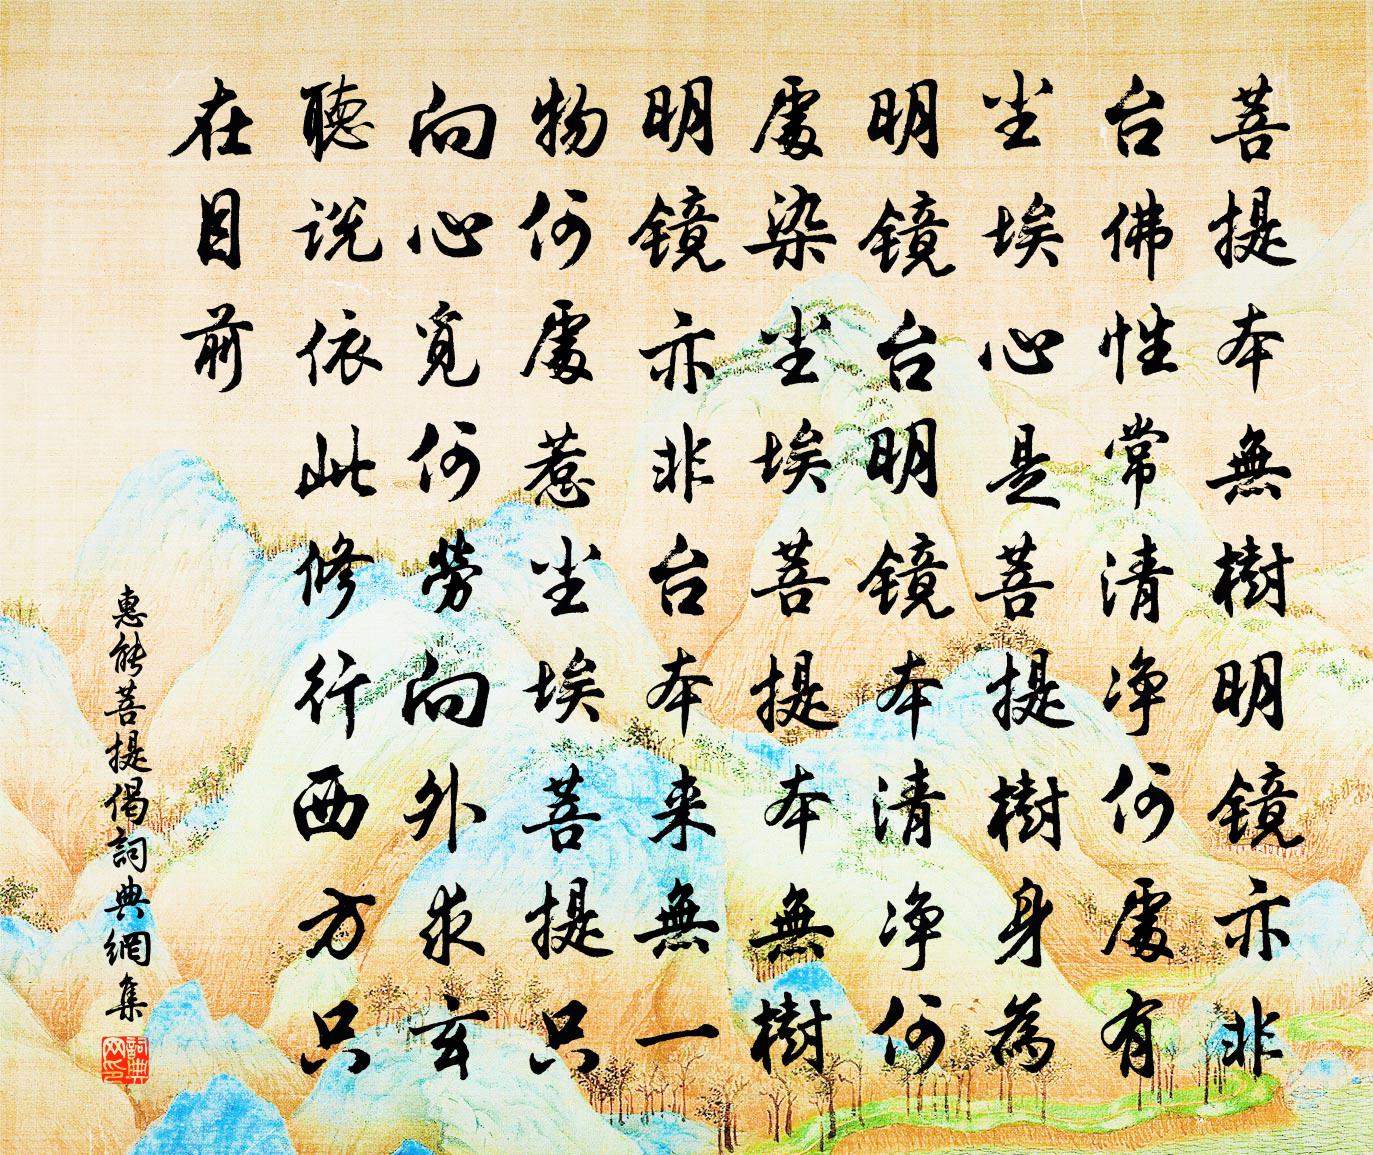 菩提本無樹明鏡亦非
台佛性常清净何處有
尘埃心是菩提樹身為
明鏡台明鏡本清净何
處染尘埃菩提本無樹
明鏡亦非台本来無一
物何處惹尘埃菩提只
向心覓何勞向外求玄
聽説依此修行西方只
在目前
惠能菩提偈詞典網集
詞典网印